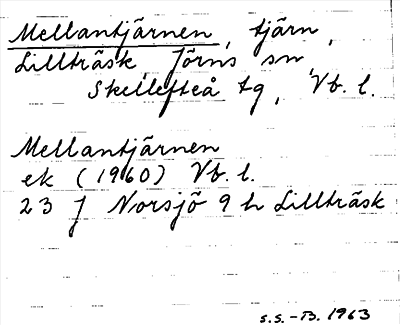 Mellantjärnen, tjärn,
Lillträsk, Jörns sn,
Skellefteå tg, Vb. l.
Mellantjärnen
ek (1960) Vb. l.
23 J Norsjö 9 h Lillträsk
S.S. - B. 1963